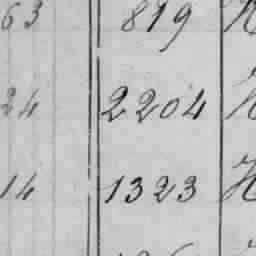 63 819 H
24 2204 H
14 1323 H